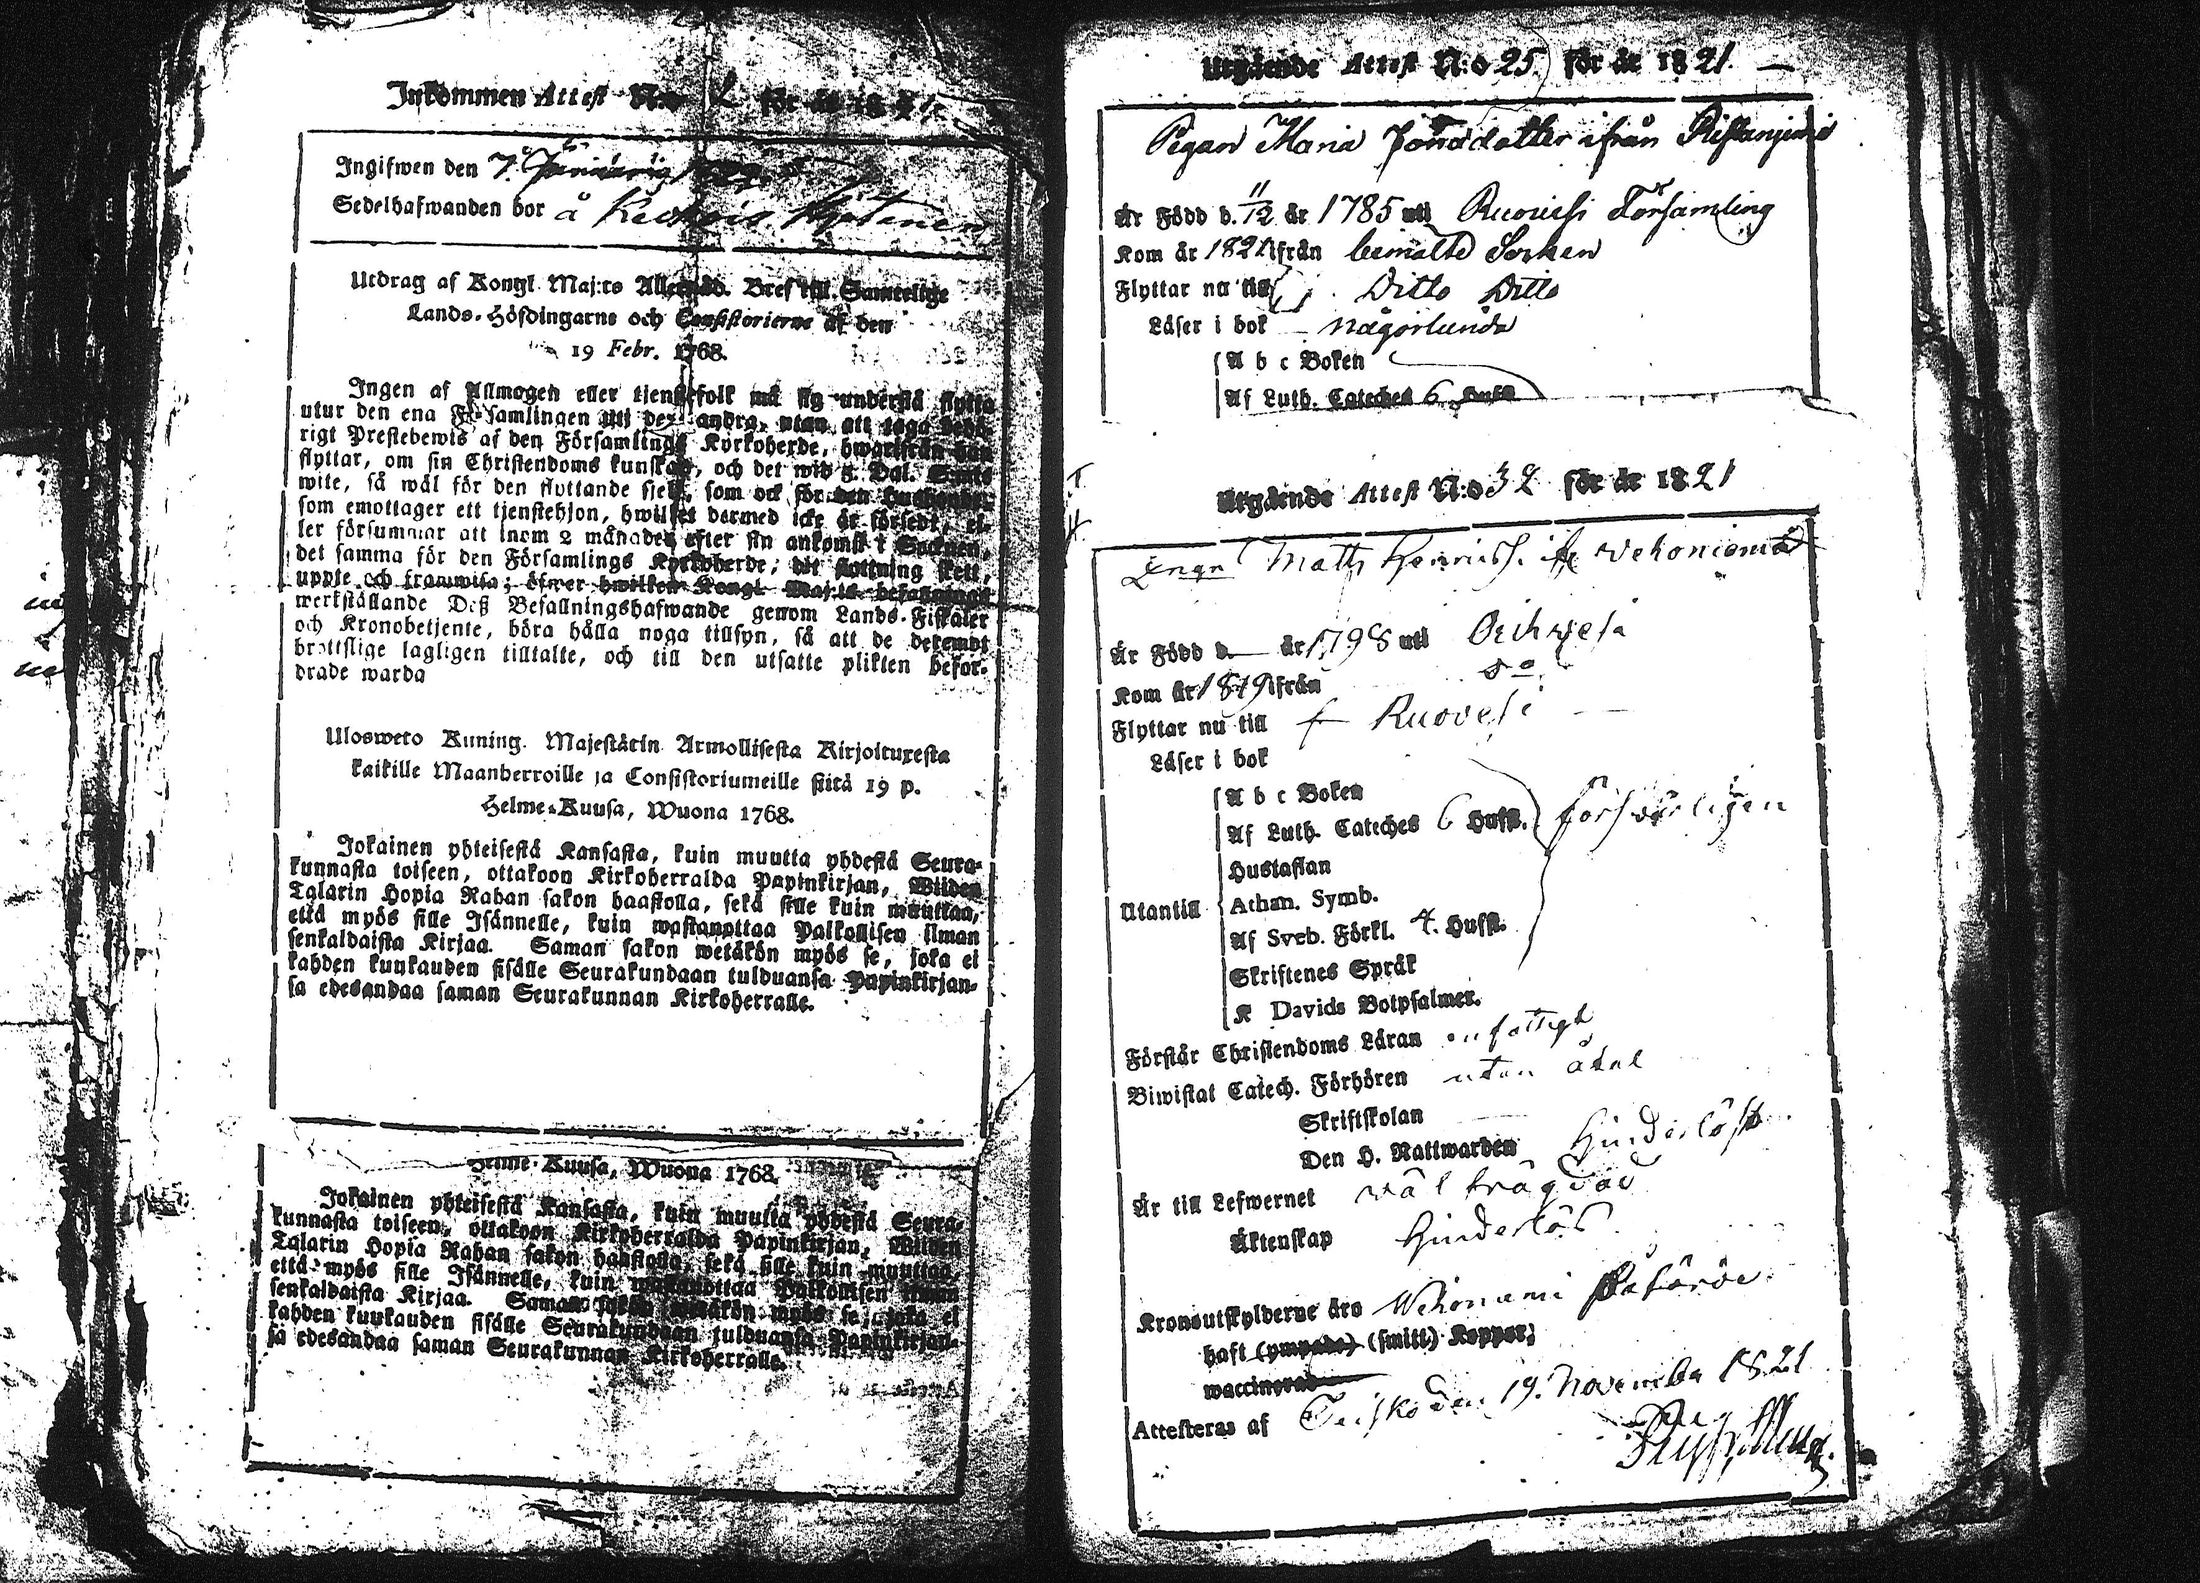 Inkommen Attest N:o 2 för år 18
Ingifwen den 7
Sedelhafwanden bor å
Utdrag af Kongl. Maj:ts Allernåd. Bref till Samtelige
Lands-Höfdingarne och Consistorierne af den
19 Febr. 1768.
Ingen af Allmogen eller tjenstefolk må sig understå flytta
utur den ena Församlingen uti den andra, utan att taga behö-
rigt Prestebewis af den Församlings Kyrkoherde, hwarifrån han
flyttar, om sin Christendoms kunskap, och det wid 5 Dal. S:mts
wite, så wäl för den flyttande sjelf, som ock för den
som emottager ett tjenstehjon, hwilket dermed icke är försedt, el-
ler försummar att inom 2 månader efter sin ankomst i Socknen,
det samma för den Församlings Kyrkoherde, dit flottning skett,
uppte och framwisa; öfwer hwilken Kongl. Maj:ts befallnings
werkställande Deß Befallningshafwande genom Lands-Fiskaler
och Kronobetjente, böra hålla noga tillsyn, så att de deremot
brottslige lagligen tilltalte, och till den utsatte plikten befor-
drade warda
Ulosweto Kuning. Majestätin Armollisesta Kirjoituxesta
kaikille Maanherroille ja Consistoriumeille siitä 19 p.
Helme-Kuusa, Wuona 1768.
Jokainen yhteisestä Kansasta, kuin muutta yhdestä Seura-
kunnasta toiseen, ottakoon Kirkoherralda Papinkirjan, Wiiden
Talarin Hopia Rahan sakon haastolla, sekä sille kuin muuttaa,
että myös sille Isännelle, kuin wastanottaa Palkollisen ilman
senkaldaista Kirjaa. Saman sakon wetäkön myös se, joka ei
kahden kuukauden sisälle Seurakundaan tulduansa Papinkirjan-
sa edesandaa saman Seurakunnan Kirkoherralle.
Helme-Kuusa, Wuona 1768.
Jokainen yhteisestä Kansasta, kuin muutta yhdestä Seura-
kunnasta toiseen, ottakoon Kirkoherralda Papinkirjan, Wiiden
Talarin Hopia Rahan sakon haastolla, sekä sille kuin muuttaa,
että myös sille Isännelle, kuin wastanottaa Palkollisen ilman
senkaldaista Kirjaa. Saman sakon wetäkön myös se, joka ei
kahden kuukauden sisälle Seurakundaan tulduansa Papinkirjan-
sa edesandaa saman Seurakunnan Kirkoherralle.
Utgående Attest N:o 25 för år 1821
Pigan Maria Jonadotter ifrån
Är Född d. 11/12 år 1785 uti Ruovesi Församling
Kom år 1821 ifrån bemälte Socken
Flyttar nu till Ditto Ditto
Läser i bok någorlunda
A b c Boken
Af Luth. Cateches 6 Hufst
Utgående Attest N:o 32 för år 1821
Drngn Matts Henriss.
Är Född d. — år 1798 uti Orihvesi
Kom år 1819 ifrån do
Flyttar nu till Ruovesi
Läser i bok
A b c Boken
Af Luth. Cateches 6 Hufst. försvarligen
Hustaflan
Utantill Athan. Symb.
Af Sveb. Förkl. 4. Hufst.
Skriftenes Språk
K Davids Botpsalmer.
Förstår Christendoms Läran enfaldigt
Biwistat Catech. Förhören utan åtal
Skriftskolan
Den H. Nattwarden Hinderlöst
Är till Lefwernet väl frägdad
Äktenskap Hinderlös
Kronoutskylderne äro påförde
haft (ympade) (smitt) Koppor,
waccinerad
Attesteras af Teisko den 19. November 1821